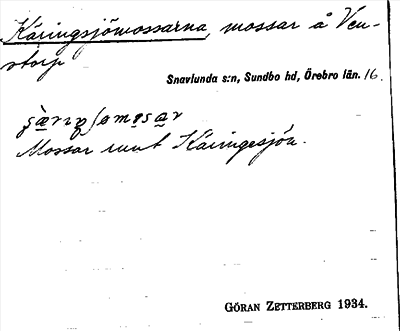 Käringsjömossarna, mossar å Ven-
storp
Snavlunda s:n, Sundbo hd, Örebro län. 16.
Mossar runt Käringesjön.
GÖRAN ZETTERBERG 1934.